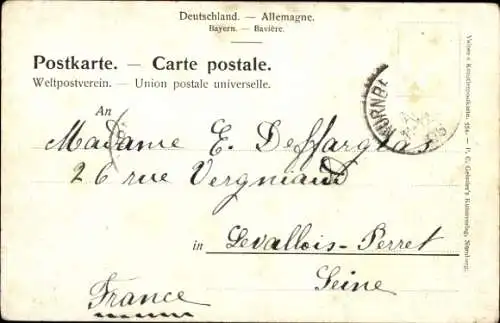 Deutschland. — Allemagne.
Bayern. — Bavière.
Postkarte. — Carte postale.
Weltpostverein. — Union postale universelle.
An
Madame E. Deffarges
26 rue Vergniaud
in Levallois-Perret
Seine
France
NÜRNBE
Künstlerpostkarte. — Kunstverlag, Nürnberg.